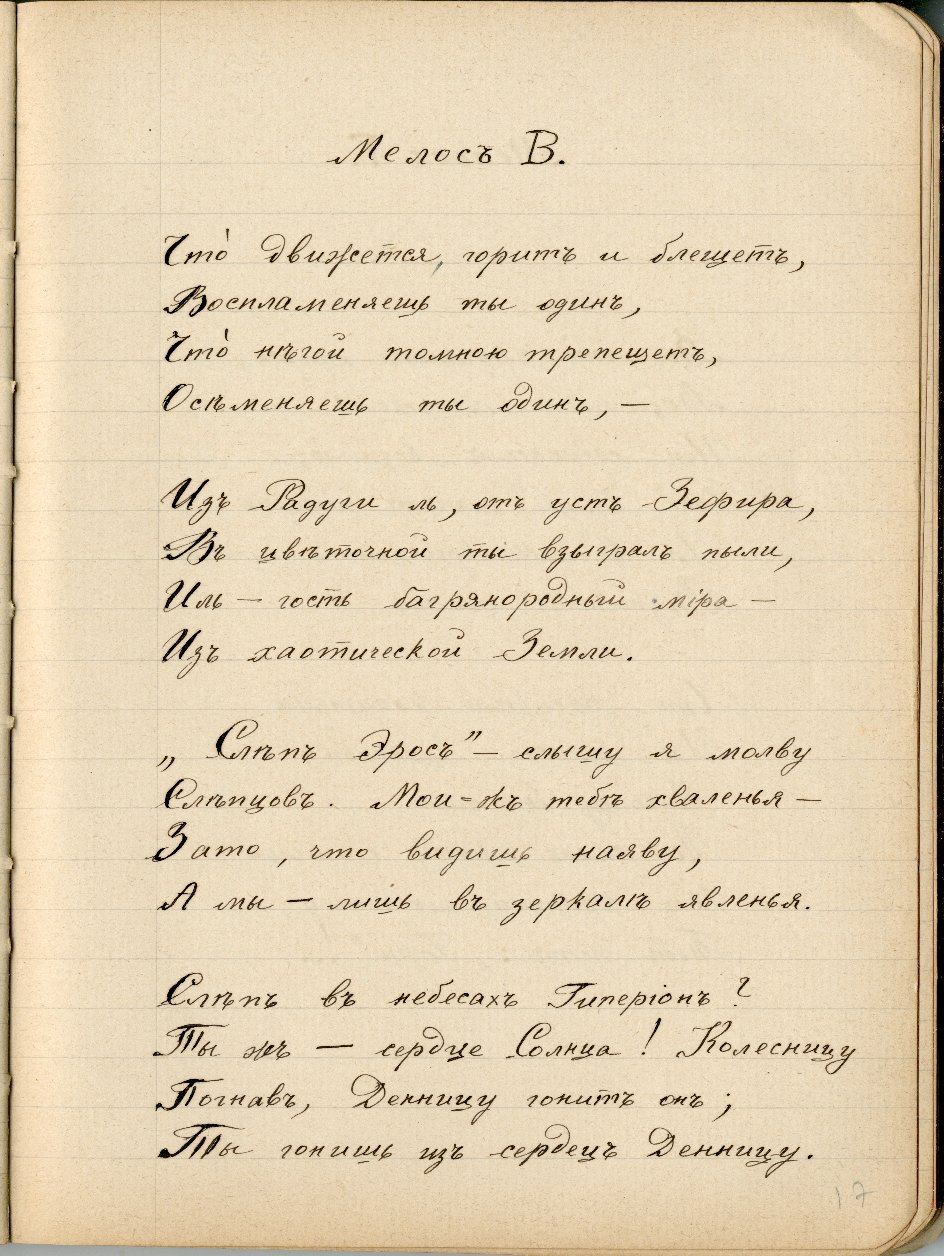 Мелосъ В.
Что́ движется, горитъ и блещетъ,
Воспламеняешь ты одинъ,
Что́ нѣгой томною трепещетъ,
Осѣменяешь ты одинъ, —
Изъ Радуги ль, отъ устъ Зефира,
Въ цвѣточной ты взыгралъ пыли,
Иль — гость багрянородный міра —
Изъ хаотической Земли.
„ Слѣпъ Эросъ” — слышу я молву
Слѣпцовъ. Мои-жъ тебѣ хваленья —
Зато, что видишь наяву,
А мы — лишь въ зеркалѣ явленья.
Слѣпъ въ небесахъ Гиперіонъ?
Ты жъ — сердце Солнца! Колесницу
Погнавъ, Денницу гонитъ онъ;
Ты гонишь изъ сердецъ Денницу.
17